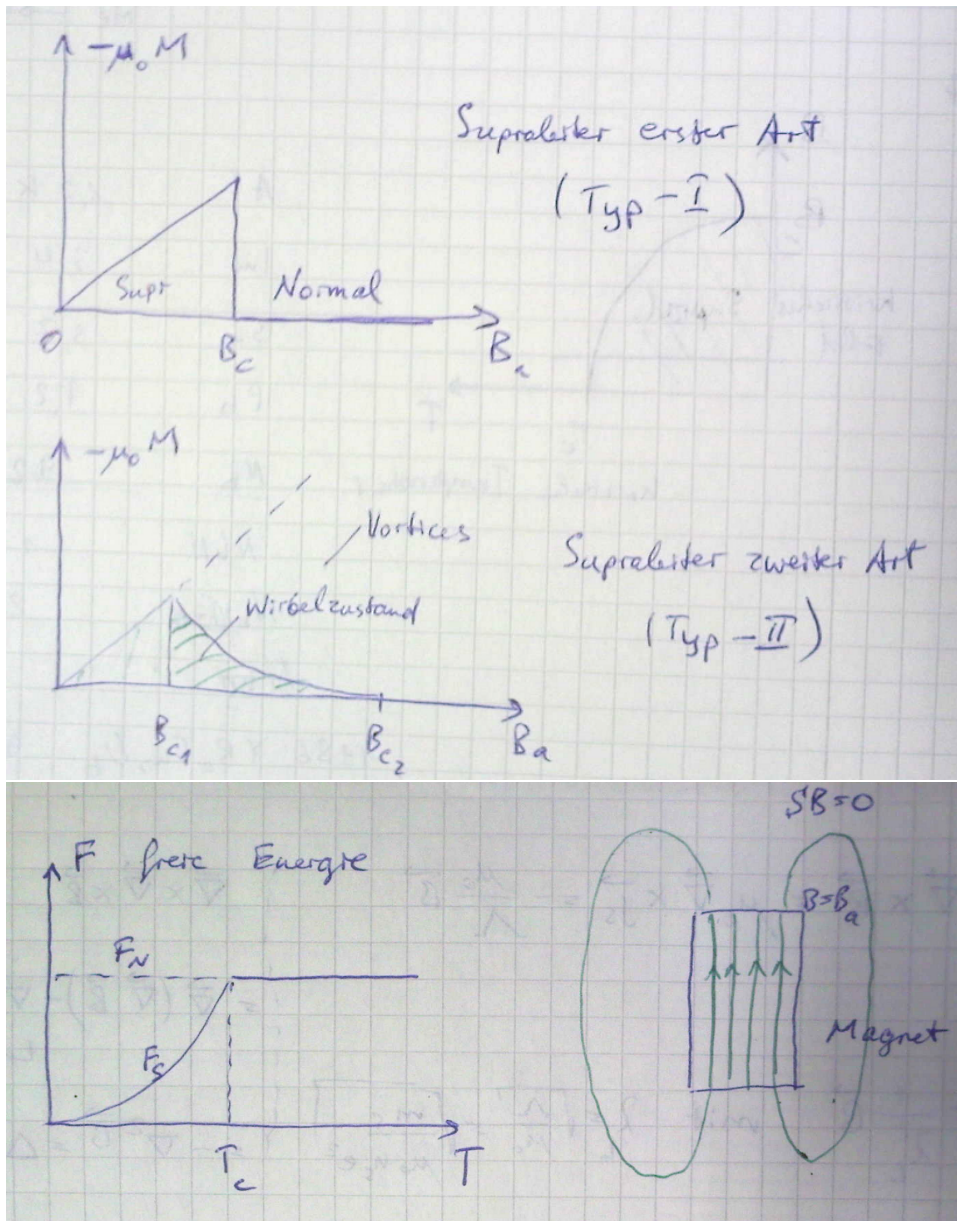 -μ₀M
Supraleiter erster Art
(Typ-I)
Supr
Normal
0
B_c
B_a
-μ₀M
Vortices
Wirbelzustand
Supraleiter zweiter Art
(Typ-II)
B_c1
B_c2
B_a
F freie Energie
F_N
F_S
T_c
T
δB=0
B=B_a
Magnet